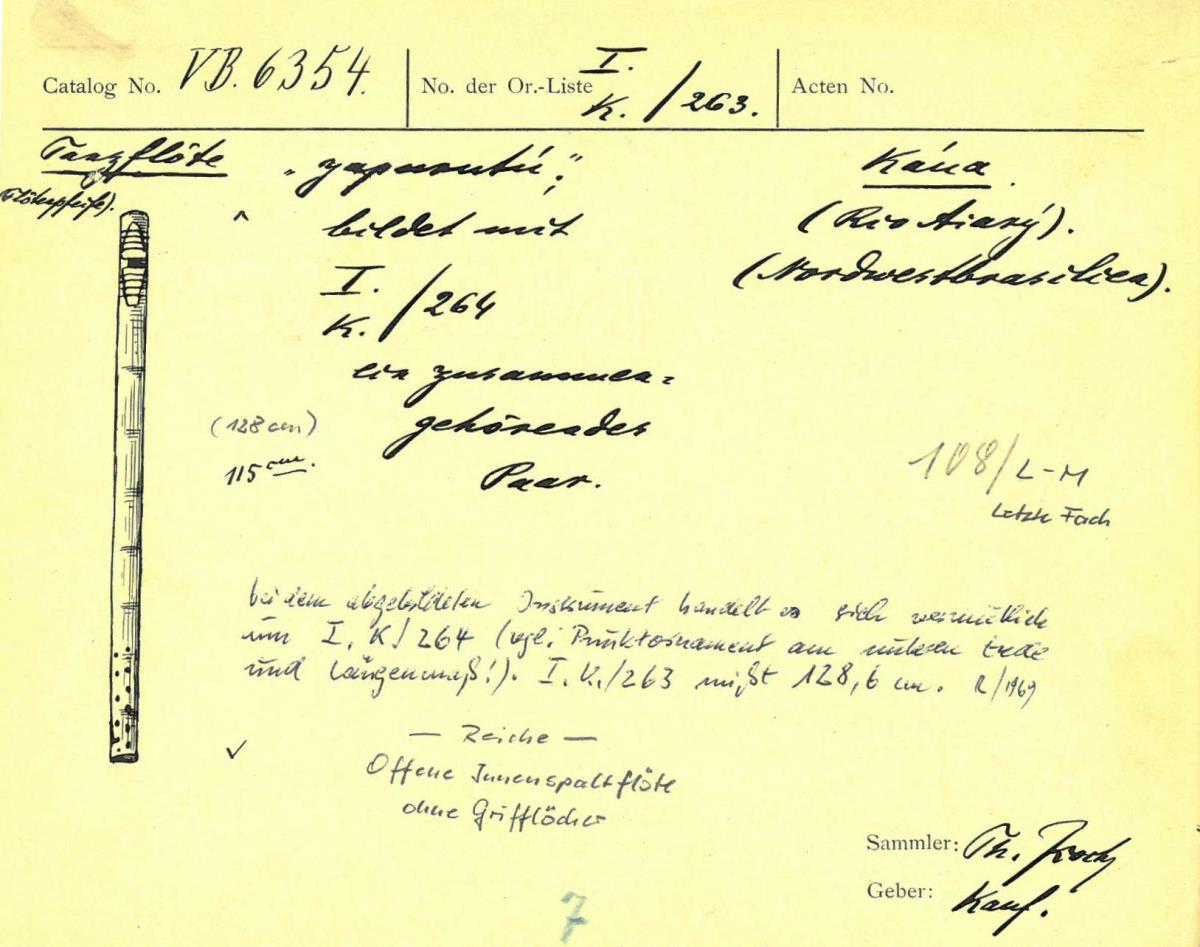 Catalog No. VB. 6354.
No. der Or.-Liste I. K. / 263.
Acten No.
Tanzflöte
(Flötenpfeife).
"yapurutú";
bildet mit
I. K. / 264
ein zusammen=
gehörendes
Paar.
Káua
(Rio Aiarý).
(Nordwestbrasilien).
(128 cm)
115 cm.
108/L-M
Letzte Fach
bei dem abgebildeten Instrument handelt es sich vermutlich
um I. K/ 264 (vgl. Punktornament am unteren Ende
und Längenmaß!). I. K./263 mißt 128,6 cm. R/1969
— Reiche —
Offene Innenspaltflöte
ohne Grifflöcher
Sammler: Th. Koch
Geber: Kauf.
7